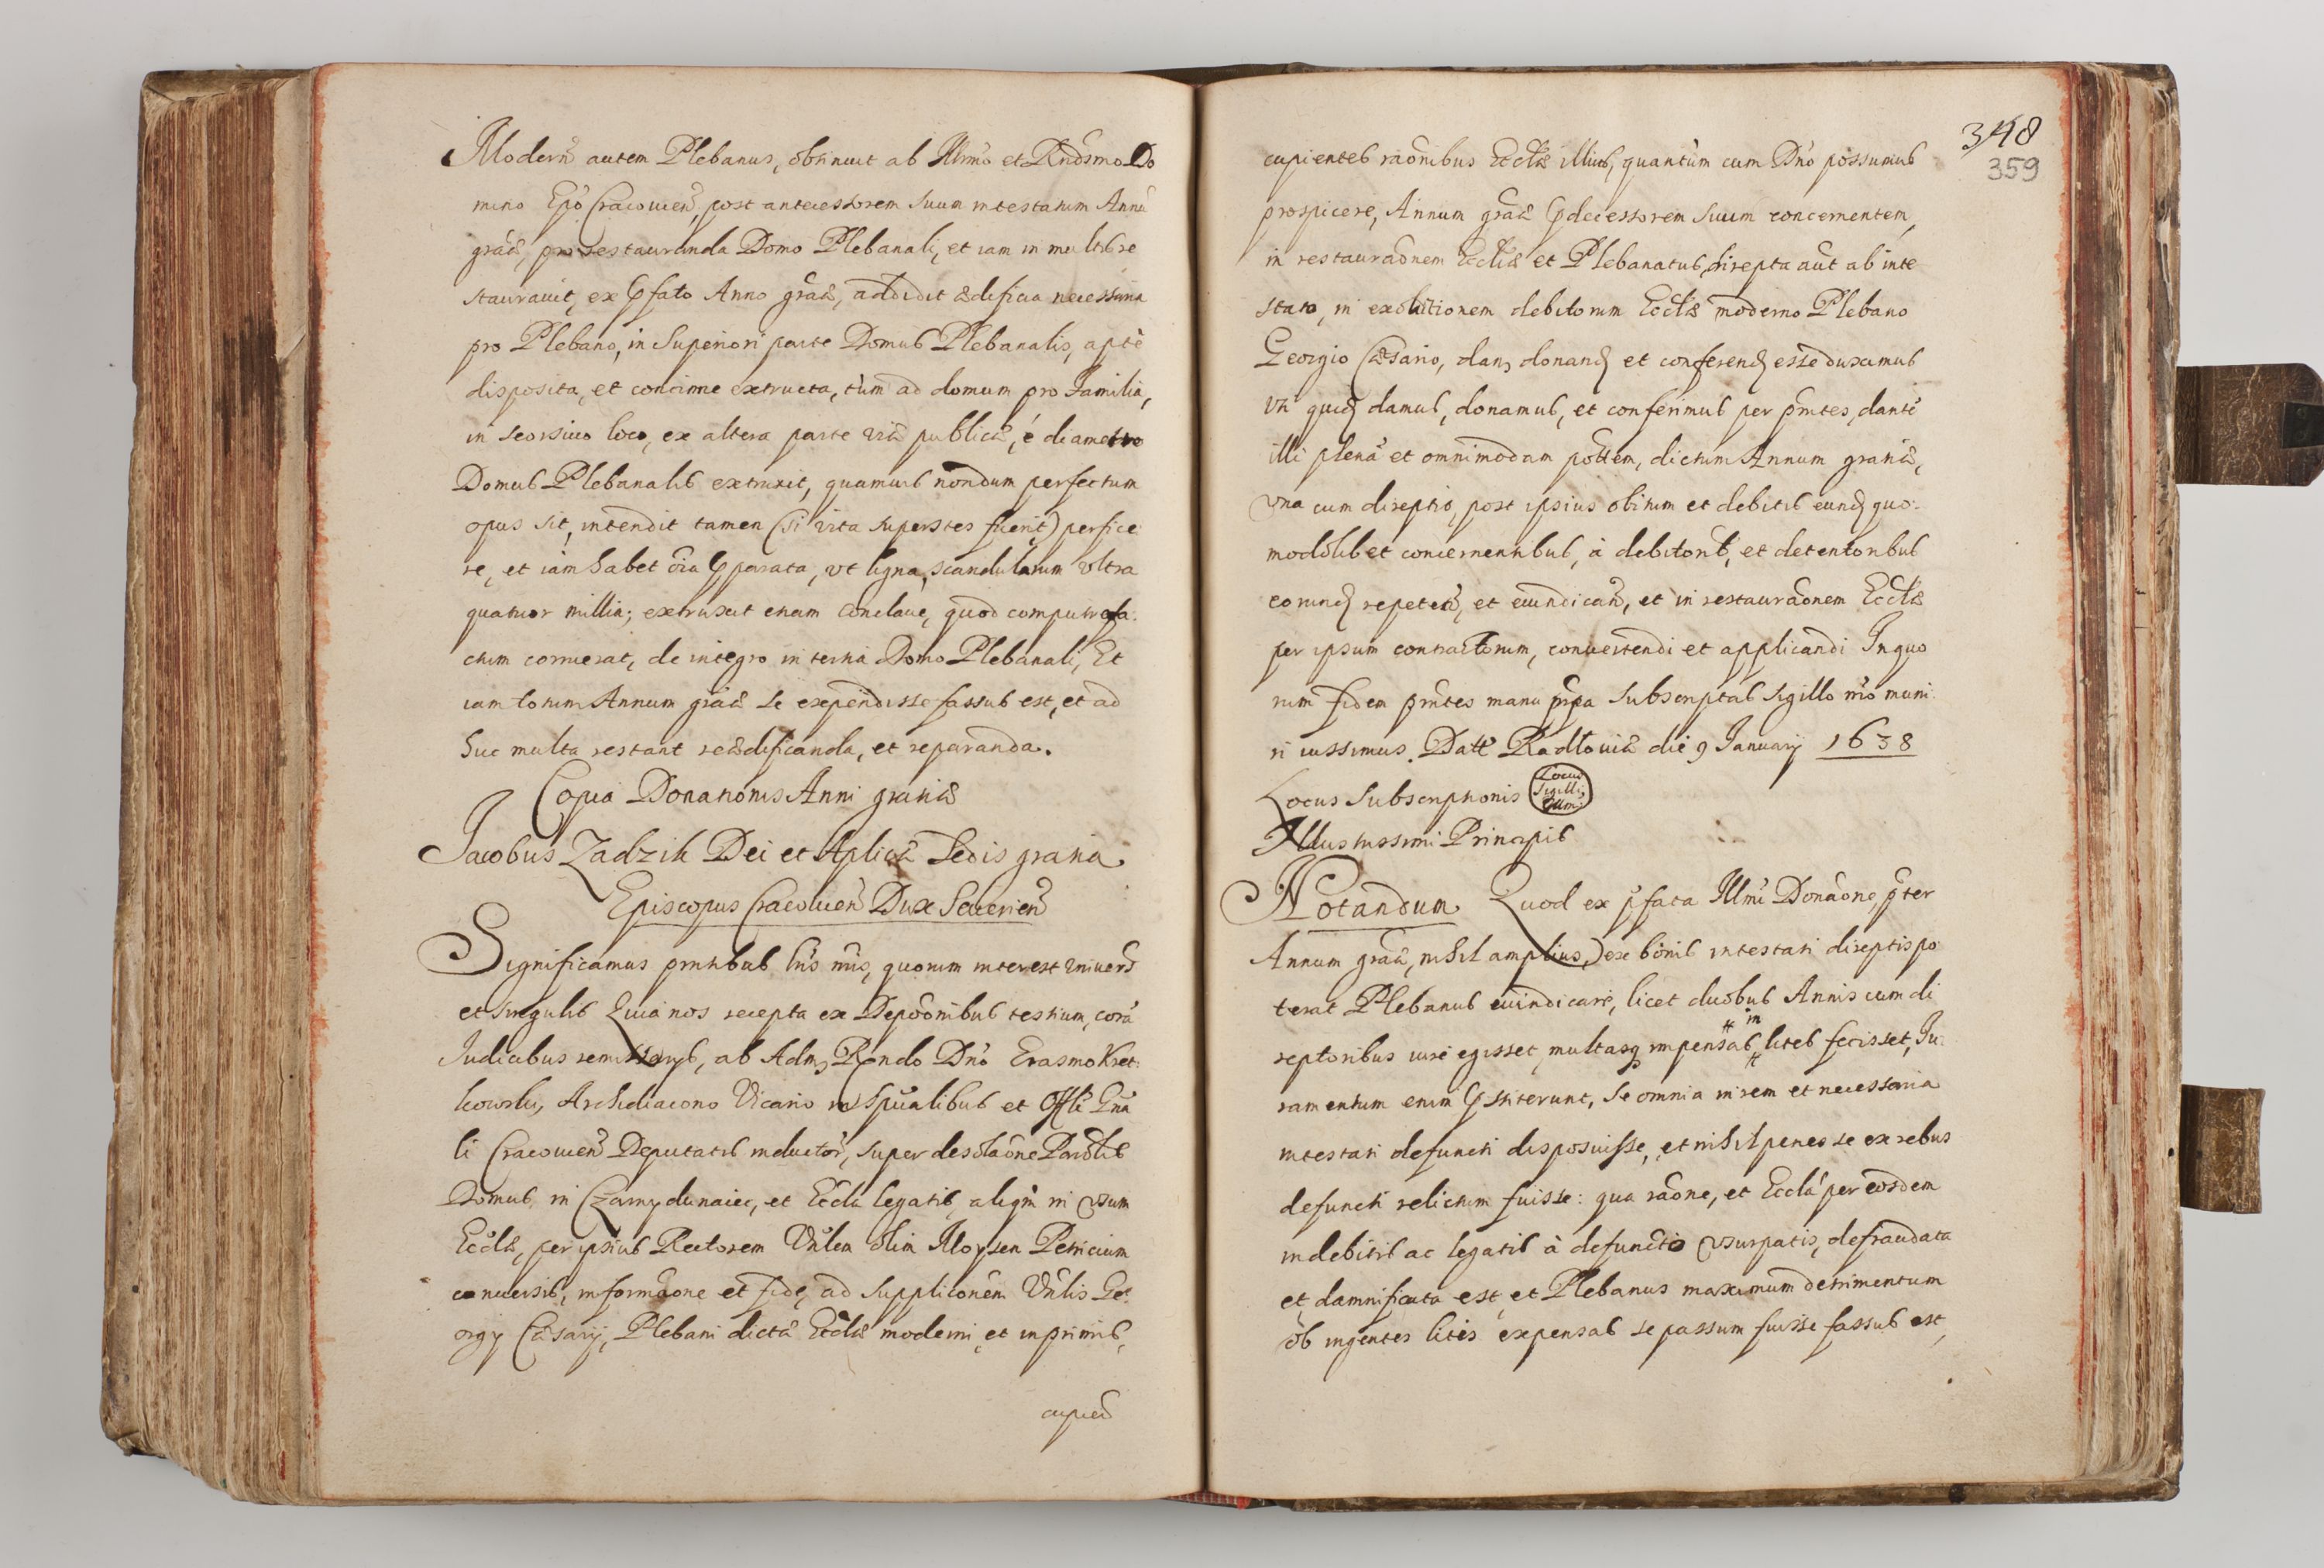 Modern9 autem Plebanus, obtinuit ab Illmo et Rndsmo Do
mino Epo Cracouien, post antecessorem suum intestatum Annu
graæ, pro restauranda Domo Plebanali, et iam in multis re
staurauit, ex pfato Anno graæ, addidit ædificia necessaria
pro Plebano, in Superiori parte Domus Plebanalis, aptè
disposita, et concinne extructa, tùm ad domum pro Familia,
in seorsiuo loco, ex altera parte viæ publicæ, è diametro
Domus Plebanalis extruxit, quamuis nondum perfectum
opus sit, intendit tamen (si vita superstes fuerit) perfice
re, et iam habet oia pparata, vt ligna, scandularum vltra
quatuor millia; extruxit etiam Conclaue, quod computrefa:
ctum corruerat, de integro in terna Domo Plebanali, Et
iam totum Annum graæ se expendisse fassus est, et ad
huc multa restant reædificanda, et reparanda.
Copia Donationis Anni gratiæ
Jacobus Zadzik Dei et Aplicæ Sedis gratia
Episcopus Cracouien Dux Seuerien
Significamus pntibus lris nris, quorum interest vniuers
et singulis Quia nos recepta ex Depoonibus testium, corã
Judicibus remissorijs, ab Adm Rendo Dno Erasmo Kret:
kowski, Archidiacono Vicario in Spualibus et Offli Gna
li Cracouien Deputatis inductor, super desolaone Paroolis
Domus in Czarnydunaiec, et Eccla legatis, aliqm in vsum
Eccliæ, per ipsius Rectorem Vnlem olim Aloysen Petricium
conuersis, informaone et fide, ad supplicaonem Vnlis Ge:
orgy Cæsarij, Plebani dictæ Eccliæ moderni, et inprimis,
cupien
348
359
cupientes raonibus Eccliæ illius, quantùm cum Dno possumus
prospicere, Annum graæ pdecessorem suum concernentem,
in restauraonem Eccliæ et Plebanatus, direpta aut ab inte
stato, in exolutionem debitorum Eccliæ moderno Plebano
Georgio Cæsario, dan, donand et conferend esse duximus
vti quid damus, donamus, et conferimus per pntes, dante
illi plenã et omnimodam pottem, dictum Annum gratiæ,
vna cum direptis, post ipsius obitum et debitis eund quo:
modolibet concernentibus, à debitorib, et detentoribus
eorund repeten, et euindican, et in restauraonem Eccliæ
per ipsum contractorum, conuertendi et applicandi In quo
rum fidem pntes manu ppa subscriptas sigillo nro muni
ri iussimus. Datt Radłouiæ die 9 January 1638
Locus Subscriptionis Locus Sigilli Illmi
Illustrissimi Principis
Notandum Quod ex pfata Illmi Donaone, pter
Annum graæ, nihil amplius, ex bonis intestati direptis po
terat Plebanus euindicare, licet duobus Annis cum di
reptoribus iure egisset, multasq impensas in lites fecisset, Ju:
ramentum enim pstiterunt, se omnia in rem et necessaria
intestati defuncti disposuisse, et nihil penes se ex rebus
defuncti relictum fuisse: qua raone, et Eccla per eosdem
in debitis ac legatis à defuncto vsurpatis, defraudata
et damnificata est, et Plebanus maximum detrimentum
ob ingentes litis expensas se passum fuisse fassus est,